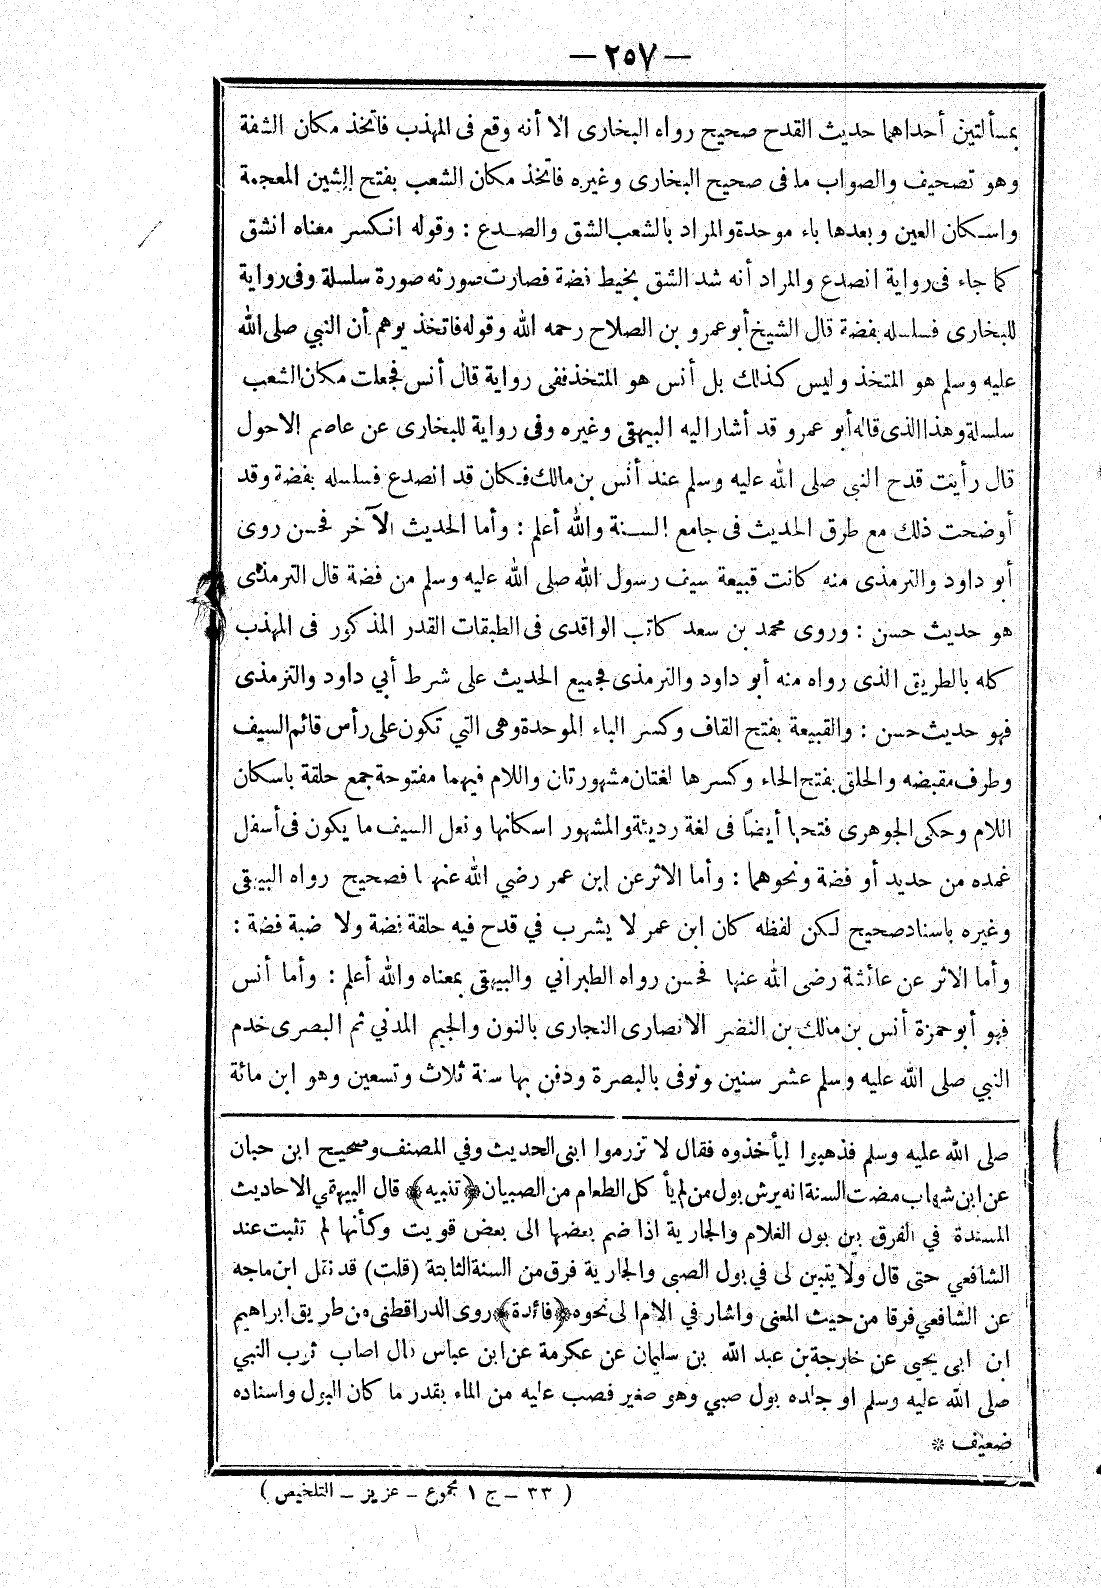 — ٢٥٧ —
بمسألتين أحداهما حديث القدح صحيح رواه البخارى الا أنه وقع فى المهذب فاتخذ مكان الشفة
وهو تصحيف والصواب ما فى صحيح البخارى وغيره فاتخذ مكان الشعب بفتح الشين المعجمة
واسكان العين وبعدها باء موحدة والمراد بالشعب الشق والصدع : وقوله انكسر معناه انشق
كما جاء فى رواية انصدع والمراد أنه شد الشق بخيط فضة فصارت صورته صورة سلسلة وفى رواية
للبخارى فسلسله بفضة قال الشيخ أبو عمرو بن الصلاح رحمه الله وقوله فاتخذ يوهم أن النبي صلى الله
عليه وسلم هو المتخذ وليس كذلك بل أنس هو المتخذ ففى رواية قال أنس فجعلت مكان الشعب
سلسلة وهذا الذى قاله أبو عمرو قد أشار اليه البيهقى وغيره وفى رواية للبخارى عن عاصم الاحول
قال رأيت قدح النبى صلى الله عليه وسلم عند أنس بن مالك فكان قد انصدع فسلسله بفضة وقد
أوضحت ذلك مع طرق الحديث فى جامع السنة والله أعلم : وأما الحديث الآخر فحسن روى
أبو داود والترمذى منه كانت قبيعة سيف رسول الله صلى الله عليه وسلم من فضة قال الترمذى
هو حديث حسن : وروى محمد بن سعد كاتب الواقدى فى الطبقات القدر المذكور فى المهذب
كله بالطريق الذى رواه منه أبو داود والترمذى فجميع الحديث على شرط أبي داود والترمذى
فهو حديث حسن : والقبيعة بفتح القاف وكسر الباء الموحدة وهى التي تكون على رأس قائم السيف
وطرف مقبضه والحلق بفتح الحاء وكسرها لغتان مشهورتان واللام فيهما مفتوحة جمع حلقة باسكان
اللام وحكى الجوهرى فتحها أيضاً فى لغة رديئة والمشهور اسكانها ونعل السيف ما يكون فى أسفل
غمده من حديد أو فضة ونحوهما : وأما الاثر عن ابن عمر رضي الله عنهما فصحيح رواه البيهقى
وغيره باسناد صحيح لكن لفظه كان ابن عمر لا يشرب في قدح فيه حلقة فضة ولا ضبة فضة :
وأما الاثر عن عائشة رضى الله عنها فحسن رواه الطبراني والبيهقى بمعناه والله أعلم : وأما أنس
فهو أبو حمزة أنس بن مالك بن النضر الانصارى النجارى بالنون والجيم المدني ثم البصرى خدم
النبي صلى الله عليه وسلم عشر سنين وتوفى بالبصرة ودفن بها سنة ثلاث وتسعين وهو ابن مائة
صلى الله عليه وسلم فذهبوا ليأخذوه فقال لا تزرموا ابنى الحديث وفي المصنف وصحيح ابن حبان
عن ابن شهاب مضت السنة انه يرش بول من لم يأكل الطعام من الصبيان ﴿تنبيه﴾ قال البيهقي الاحاديث
المسندة في الفرق بين بول الغلام والجارية اذا ضم بعضها الى بعض قويت وكأنها لم تثبت عند
الشافعي حتى قال ولا يتبين لى في بول الصبى والجارية فرق من السنة الثابتة (قلت) قد نقل ابن ماجه
عن الشافعي فرقا من حيث المعنى واشار في الام الى نحوه ﴿فائدة﴾ روى الدارقطنى من طريق ابراهيم
ابن ابى يحيى عن خارجة بن عبد الله بن سليمان عن عكرمة عن ابن عباس قال اصاب ثوب النبي
صلى الله عليه وسلم او جلده بول صبي وهو صغير فصب عليه من الماء بقدر ما كان البول واسناده
ضعيف *
( ٣٣ – ج ١ مجموع – عزيز – التلخيص )